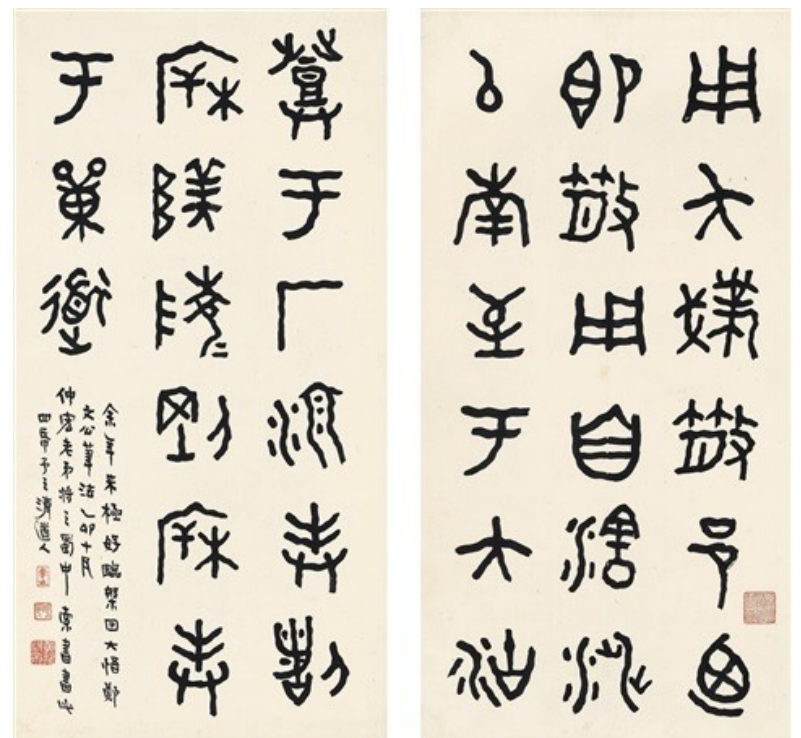 用夨撲散邑迺
即散用自瀗涉
以南至于大沽
登于厂湶封割
𣏟陕陵剛𣏟封
于單道
余年來極好臨槃因大悟鄭
文公筆法乙卯十月
仲宏老弟將之蜀中索書書此
四幀予之清道人